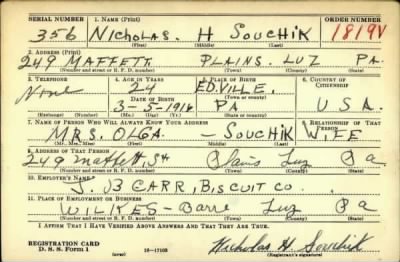 SERIAL NUMBER 1. NAME (Print) ORDER NUMBER
356 NICHOLAS. H SOUCHIK 1819V
(First) (Middle) (Last)
2. ADDRESS (Print)
249 MAFFETT PLAINS. LUZ PA.
(Number and street or R. F. D. number) (Town) (County) (State)
3. TELEPHONE 4. AGE IN YEARS 5. PLACE OF BIRTH 6. COUNTRY OF CITIZENSHIP
None 24 EDVILLE.
DATE OF BIRTH (Town or county)
3-5-1916 PA USA.
(Exchange) (Number) (Mo.) (Day) (Yr.) (State or country)
7. NAME OF PERSON WHO WILL ALWAYS KNOW YOUR ADDRESS 8. RELATIONSHIP OF THAT PERSON
MRS. OLGA - SOUCHIK WIFE
(Mr., Mrs., Miss) (First) (Middle) (Last)
9. ADDRESS OF THAT PERSON
249 Maffett St Plains Luz Pa
(Number and street or R. F. D. number) (Town) (County) (State)
10. EMPLOYER'S NAME
J. B CARR, BISCUIT CO.
11. PLACE OF EMPLOYMENT OR BUSINESS
WILKES-Barre Luz Pa
(Number and street or R. F. D. number) (Town) (County) (State)
I AFFIRM THAT I HAVE VERIFIED ABOVE ANSWERS AND THAT THEY ARE TRUE.
REGISTRATION CARD
D. S. S. Form 1 (over) 16-17105 Nicholas H. Souchik
(Registrant's signature)